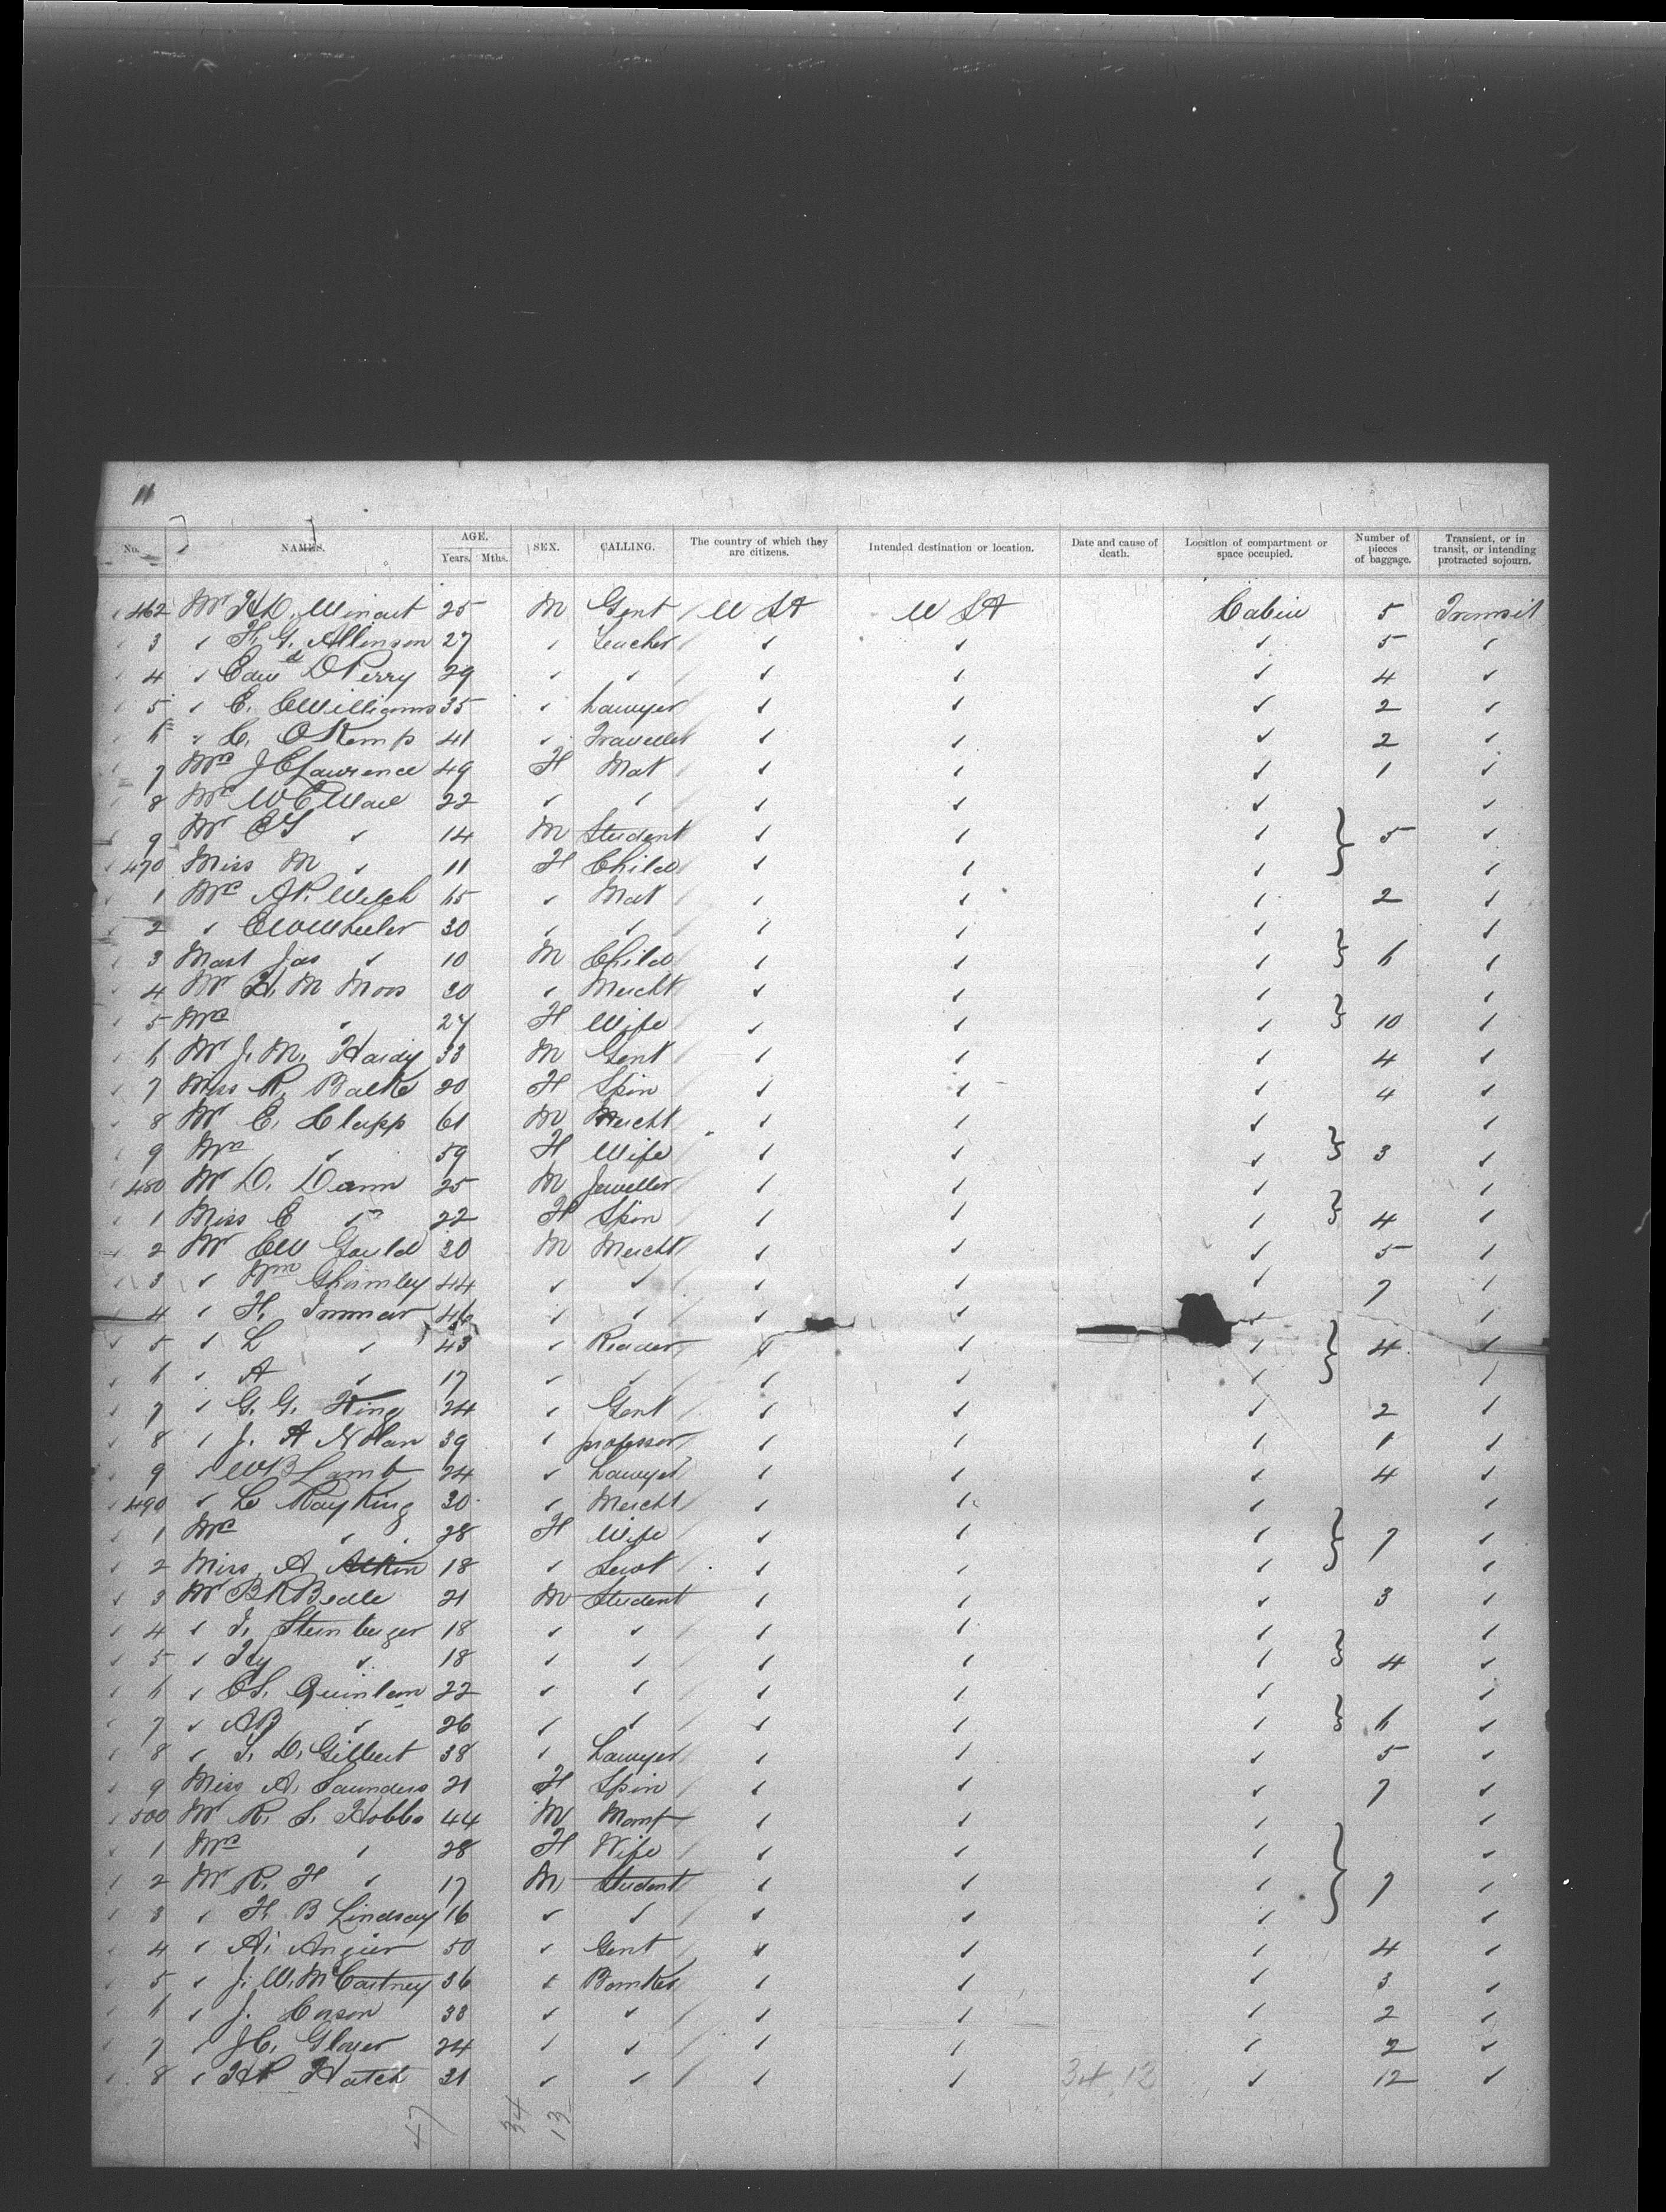 11
No. NAMES. AGE. Years. Mths. SEX. CALLING. The country of which they are citizens. Intended destination or location. Date and cause of death. Location of compartment or space occupied. Number of pieces of baggage. Transient, or in transit, or intending protracted sojourn.
462 Mr H.D. Winant 25 M Gent U S A U S A Cabin 5 Transit
3 " H. G. Allinson 27 " Teacher " " " 5 "
4 " Edwd D Perry 29 " " " " " 4 "
5 " E. C Williams 35 " Lawyer " " " 2 "
6 " C. O Kemp 41 " Traveller " " " 2 "
7 Mrs J C Lawrence 49 F Mat " " " 1 "
8 Mrs W C 22 " " " " " "
9 Mr " 14 M Student " " " 5 "
470 Miss M " 11 F Child " " " "
1 Mrs A P. Welch 65 " Mat " " " 2 "
2 " E W Wheeler 30 " " " " " "
3 Mast Jas " 10 M Child " " " 6 "
4 Mr H. M Moos 30 " Mercht " " " "
5 Mrs " 27 F Wife " " " 10 "
6 Mr J. M. Hardy 33 M Gent " " " 4 "
7 Miss R. Balke 20 F Spin " " " 4 "
8 Mr E. Clapp 61 M Mercht " " " "
9 Mrs " 59 F Wife " " " 3 "
480 Mr D. Dann 25 M Jeweller " " " "
1 Miss E " 22 F Spin " " " 4 "
2 Mr C W Gould 30 M Mercht " " " 5 "
3 " Wm Ghormley 44 " " " " " 7 "
4 " H. 46 " " " " " "
5 " L " 43 " Reader " " " 4 "
6 " A " 17 " " " " " "
7 " G. G. King 24 " Gent " " " 2 "
8 " J. A Nolan 39 " professor " " " 1 "
9 " W B Lamb 24 " Lawyer " " " 4 "
490 " Le Ray King 30 " Mercht " " " "
1 Mrs " 28 F Wife " " " 7 "
2 Miss A Atkin 18 " Servt " " " "
3 Mr B R Bedle 21 M Student " " " 3 "
4 " J. Steinberger 18 " " " " " "
5 " Hy " 18 " " " " " 4 "
6 " C S. Quinlan 22 " " " " " "
7 " A B " 26 " " " " " 6 "
8 " T. D. Gilbert 38 " Lawyer " " " 5 "
9 Miss A. Saunders 21 F Spin " " " 7 "
500 Mr R. S. Hobbs 44 M " " " "
1 Mrs " 28 F Wife " " " "
2 Mr R. H " 17 M Student " " " 7 "
3 " H B Lindsay 16 " " " " " "
4 " A. Angier 50 " Gent " " " 4 "
5 " J. W. McCartney 36 " Banker " " " 3 "
6 " J. Corson 33 " " " " " 2 "
7 " J C. Glover 24 " " " " " 2 "
8 " H P Hatch 31 " " " " 34.12 " 12 "
47 34 13